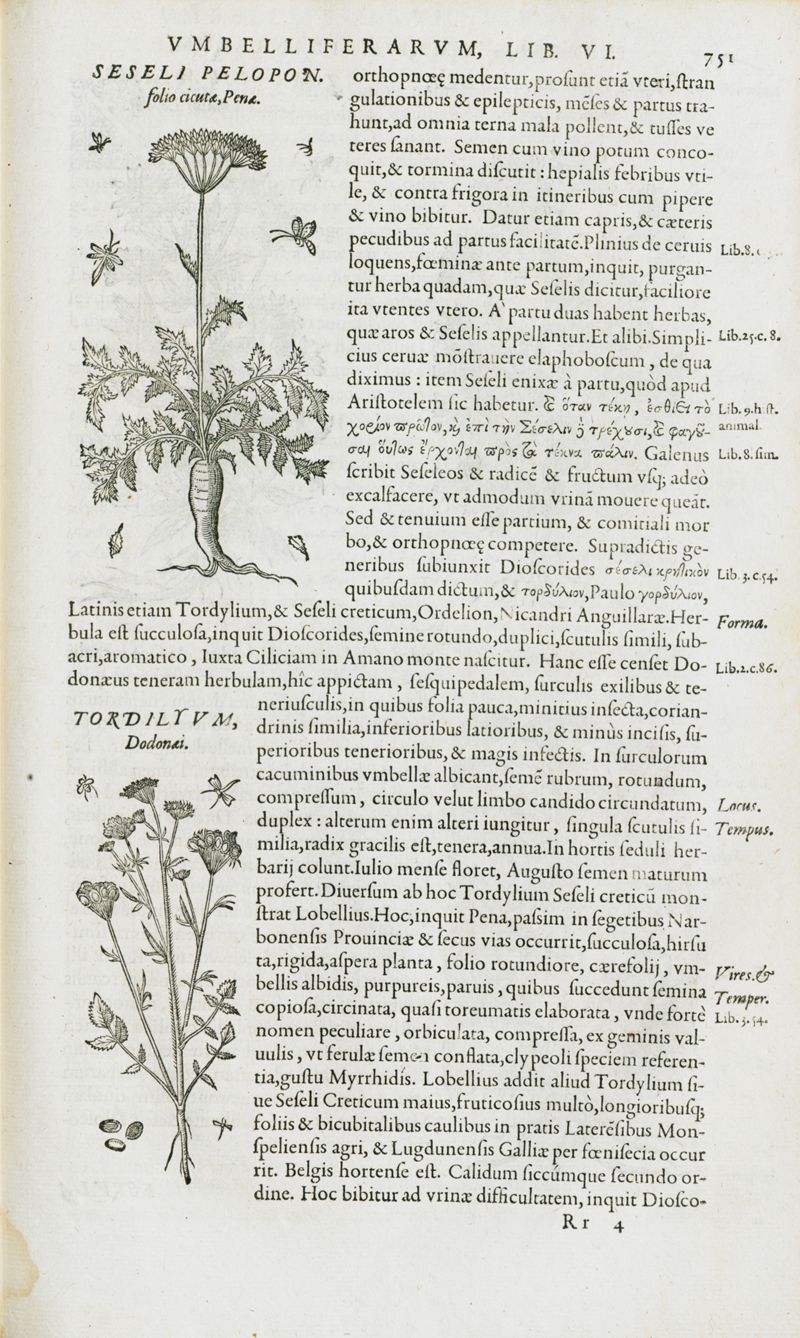 VMBELLIFERARVM, LIB. VI.
751
SESELI PELOPON.
folio cicutæ, Pena.
orthopnœę medentur, prosunt etiā vteri, stran
gulationibus & epilepticis, mēses & partus tra-
hunt, ad omnia terna mala pollent, & tusses ve
teres sanant. Semen cum vino potum conco-
quit, & tormina discutit : hepialis febribus vti-
le, & contra frigora in itineribus cum pipere
& vino bibitur. Datur etiam capris, & cæteris
pecudibus ad partus facilitatē. Plinius de ceruis
Lib.8.
loquens, fœminæ ante partum, inquit, purgan-
tur herba quadam, quæ Seselis dicitur, faciliore
ita vtentes vtero. A` partu duas habent herbas,
quæ aros & Seselis appellantur. Et alibi. Simpli-
Lib.25.c.8.
cius ceruæ mōstrauere elaphoboscum , de qua
diximus : item Seseli enixæ à partu, quòd apud
Aristotelem sic habetur. & ὅταν τέκῃ , ἐσθίει τὸ
Lib.9.h st.
animal.
χορίον πρῶτον, ϗ ἐπὶ τὴν Σέσελιν ȝ τρέχουσι, & φαγοῦ-
σαι οὕτως ἔρχονται πρὸς τὰ τέκνα πάλιν. Galenus
Lib.8.sim.
scribit Seseleos & radicē & fructum vsq; adeò
excalfacere, vt admodum vrinā mouere queāt.
Sed & tenuium esse partium, & comitiali mor
bo, & orthopnœę competere. Supradictis ge-
neribus subiunxit Dioscorides σέσελι κρητικὸν
Lib.3.c.54.
quibusdam dictum, & τορδύλιον, Paulo γορδύλιον,
Latinis etiam Tordylium, & Seseli creticum, Ordelion, Nicandri Anguillaræ. Her-
Forma.
bula est succulosa, inquit Dioscorides, semine rotundo, duplici, scutulis simili, sub-
acri, aromatico , Iuxta Ciliciam in Amano monte nascitur. Hanc esse censet Do-
Lib.2.c.86.
donæus teneram herbulam, hîc appictam , sesquipedalem, surculis exilibus & te-
TORDILYVM,
Dodonæi.
neriusculis, in quibus folia pauca, minitius insecta, corian-
drinis similia, inferioribus latioribus, & minùs incisis, su-
perioribus tenerioribus, & magis infectis. In surculorum
cacuminibus vmbellæ albicant, semē rubrum, rotundum,
compressum , circulo velut limbo candido circundatum,
Locus.
duplex : alterum enim alteri iungitur , singula scutulis si-
Tempus.
milia, radix gracilis est, tenera, annua. In hortis seduli her-
barij colunt. Iulio mense floret, Augusto semen maturum
profert. Diuersum ab hoc Tordylium Seseli creticū mon-
strat Lobellius. Hoc, inquit Pena, passim in segetibus Nar-
bonensis Prouinciæ & secus vias occurrit, succulosa, hirsu
ta, rigida, aspera planta , folio rotundiore, cærefolij , vm-
Vires. &
bellis albidis, purpureis, paruis , quibus succedunt semina
Temper.
copiosa, circinata, quasi toreumatis elaborata , vnde fortè
Lib.3.54.
nomen peculiare , orbiculata, compressa, ex geminis val-
uulis , vt ferulæ semen conflata, clypeoli speciem referen-
tia, gustu Myrrhidis. Lobellius addit aliud Tordylium si-
ue Seseli Creticum maius, fruticosius multò, longioribusq;
foliis & bicubitalibus caulibus in pratis Laterēsibus Mon-
speliensis agri, & Lugdunensis Galliæ per fœnisecia occur
rit. Belgis hortense est. Calidum siccúmque secundo or-
dine. Hoc bibitur ad vrinæ difficultatem, inquit Diosco-
Rr 4